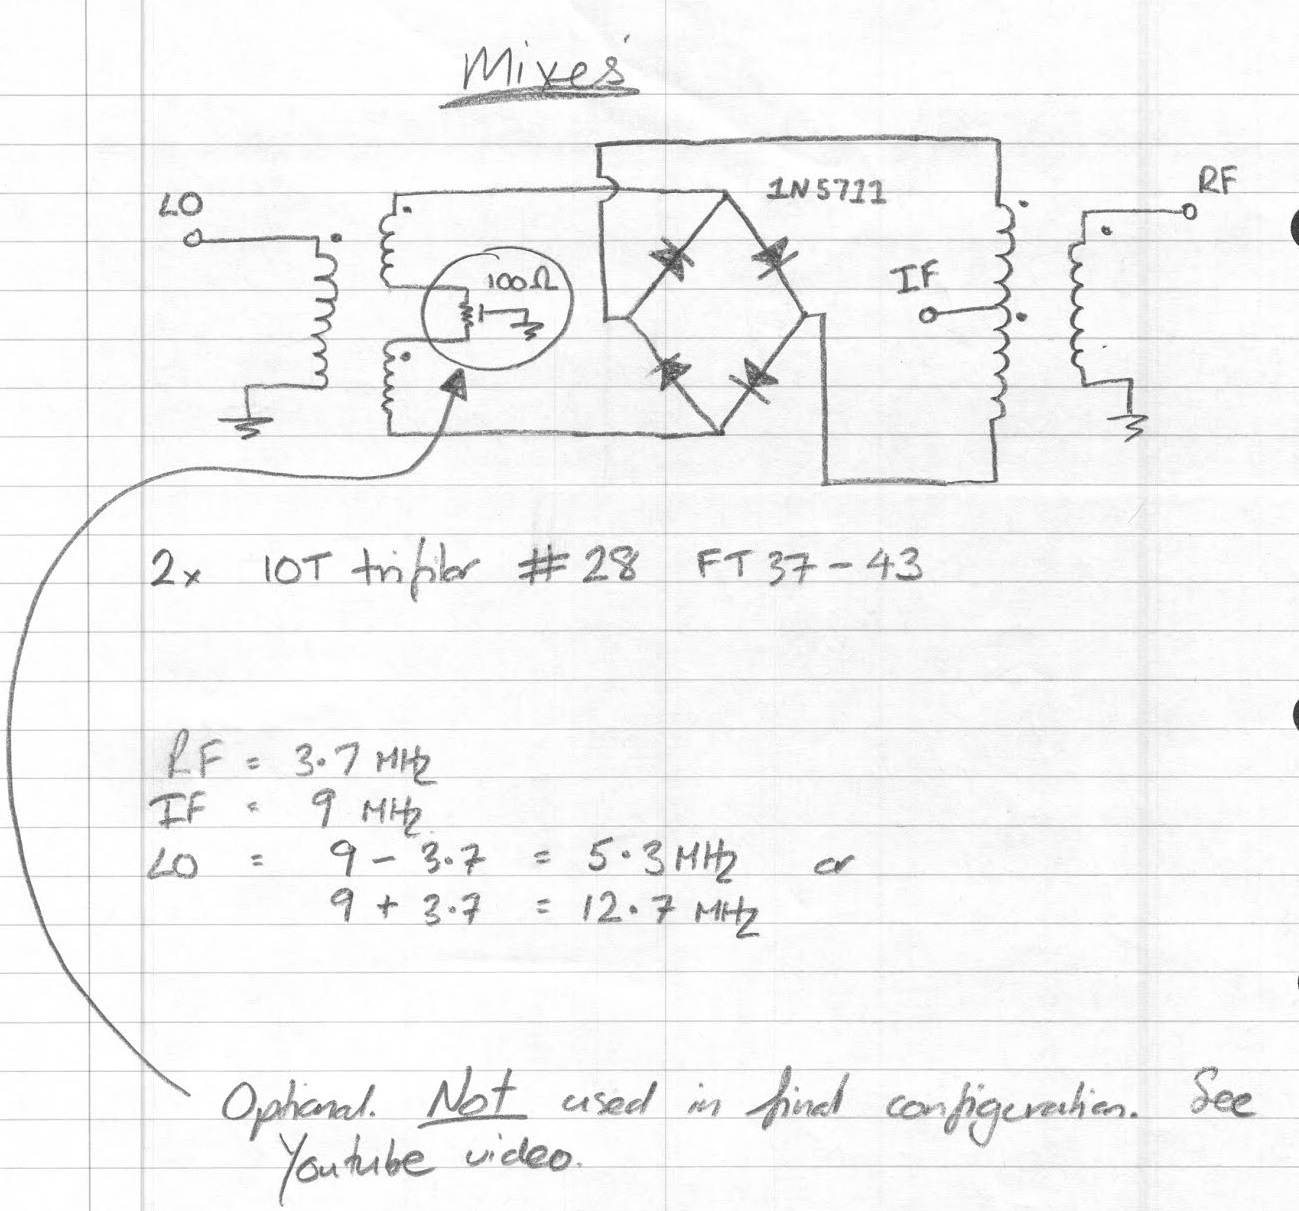 Mixer
LO
100Ω
1N5711
IF
RF
2x 10T trifilar #28 FT37-43
RF = 3.7 MHz
IF = 9 MHz
LO = 9 - 3.7 = 5.3 MHz or
9 + 3.7 = 12.7 MHz
Optional. Not used in final configuration. See
Youtube video.